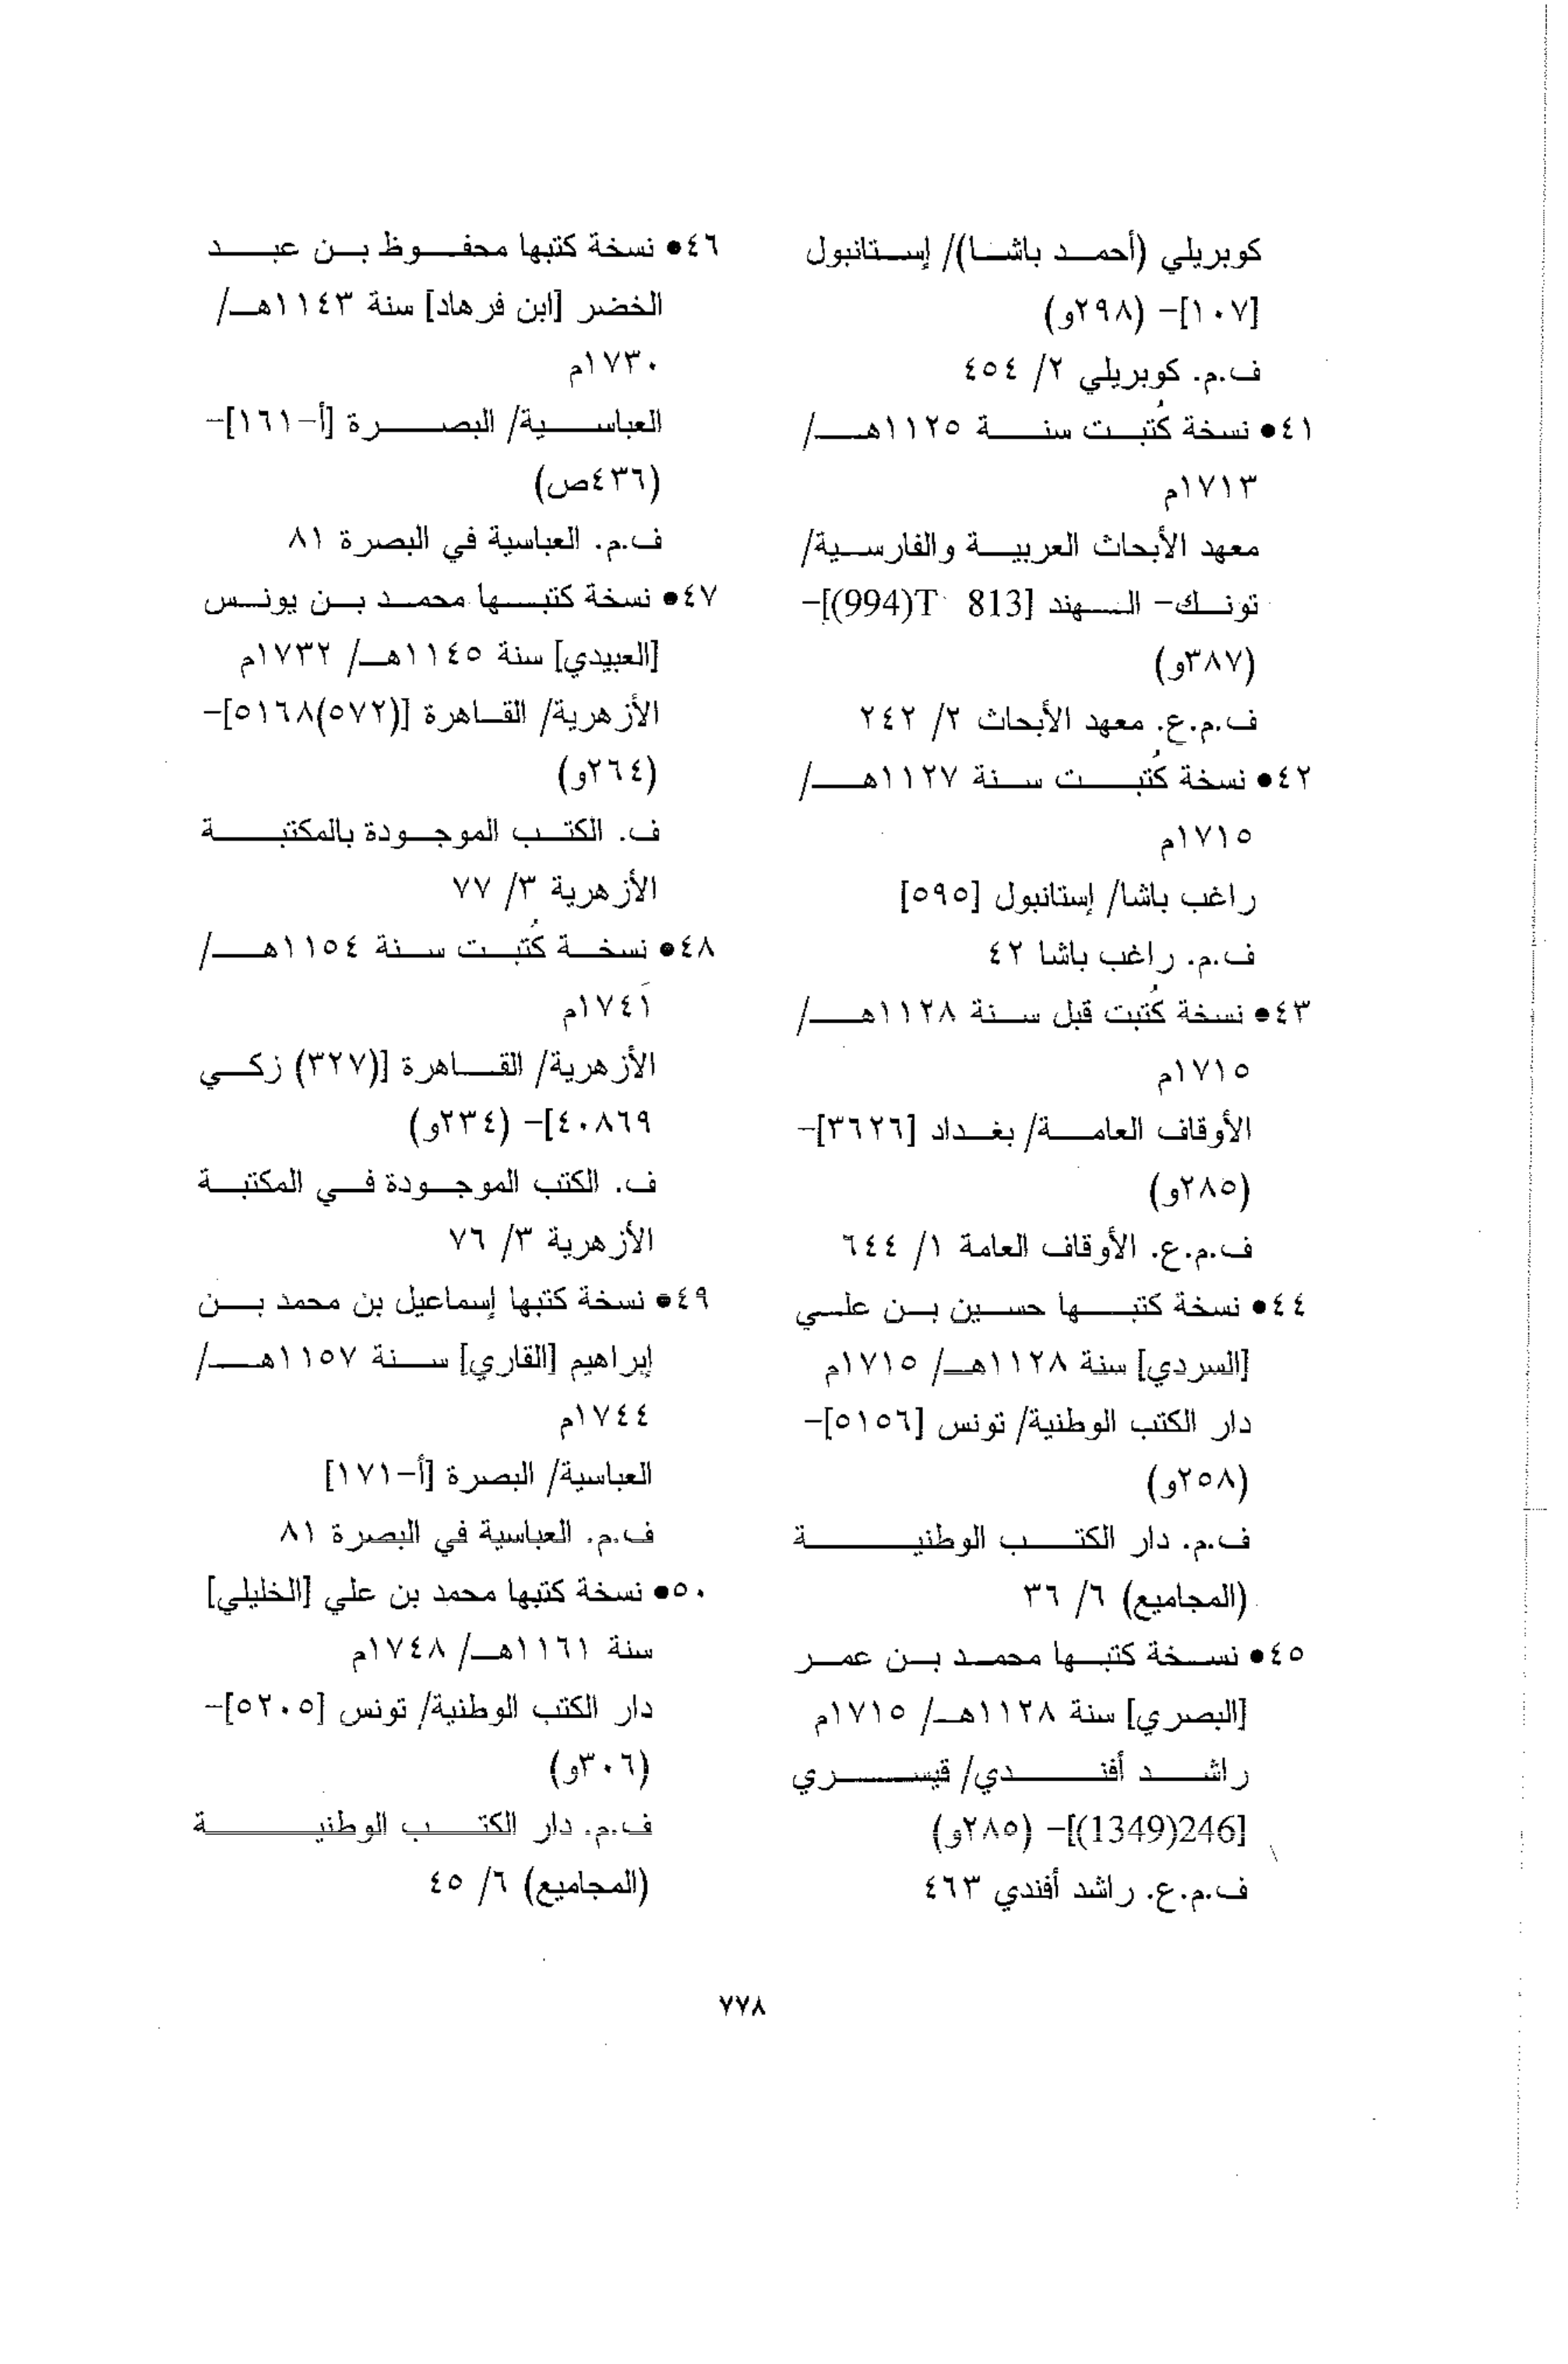 كوبريلي (أحمد باشا)/ إستانبول
[١٠٧]- (٢٩٨و)
ف.م. كوبريلي ٢/ ٤٥٤
٤١• نسخة كُتبت سنة ١١٢٥هـ/
١٧١٣م
معهد الأبحاث العربية والفارسية/
تونك- الهند [813 T(994)]-
(٣٨٧و)
ف.م.ع. معهد الأبحاث ٢/ ٢٤٢
٤٢• نسخة كُتبت سنة ١١٢٧هـ/
١٧١٥م
راغب باشا/ إستانبول [٥٩٥]
ف.م. راغب باشا ٤٢
٤٣• نسخة كُتبت قبل سنة ١١٢٨هـ/
١٧١٥م
الأوقاف العامة/ بغداد [٣٦٢٦]-
(٢٨٥و)
ف.م.ع. الأوقاف العامة ١/ ٦٤٤
٤٤• نسخة كتبها حسين بن علي
[السردي] سنة ١١٢٨هـ/ ١٧١٥م
دار الكتب الوطنية/ تونس [٥١٥٦]-
(٢٥٨و)
ف.م. دار الكتب الوطنية
(المجاميع) ٦/ ٣٦
٤٥• نسخة كتبها محمد بن عمر
[البصري] سنة ١١٢٨هـ/ ١٧١٥م
راشد أفندي/ قيسري
[246(1349)]- (٢٨٥و)
ف.م.ع. راشد أفندي ٤٦٣
٤٦• نسخة كتبها محفوظ بن عبد
الخضر [ابن فرهاد] سنة ١١٤٣هـ/
١٧٣٠م
العباسية/ البصرة [أ-١٦١]-
(٤٣٦ص)
ف.م. العباسية في البصرة ٨١
٤٧• نسخة كتبها محمد بن يونس
[العبيدي] سنة ١١٤٥هـ/ ١٧٣٢م
الأزهرية/ القاهرة [(٥٧٢)٥١٦٨]-
(٢٦٤و)
ف. الكتب الموجودة بالمكتبة
الأزهرية ٣/ ٧٧
٤٨• نسخة كُتبت سنة ١١٥٤هـ/
١٧٤١م
الأزهرية/ القاهرة [(٣٢٧) زكي
٤٠٨٦٩]- (٢٣٤و)
ف. الكتب الموجودة في المكتبة
الأزهرية ٣/ ٧٦
٤٩• نسخة كتبها إسماعيل بن محمد بن
إبراهيم [القاري] سنة ١١٥٧هـ/
١٧٤٤م
العباسية/ البصرة [أ-١٧١]
ف.م. العباسية في البصرة ٨١
٥٠• نسخة كتبها محمد بن علي [الخليلي]
سنة ١١٦١هـ/ ١٧٤٨م
دار الكتب الوطنية/ تونس [٥٢٠٥]-
(٣٠٦و)
ف.م. دار الكتب الوطنية
(المجاميع) ٦/ ٤٥
٧٧٨